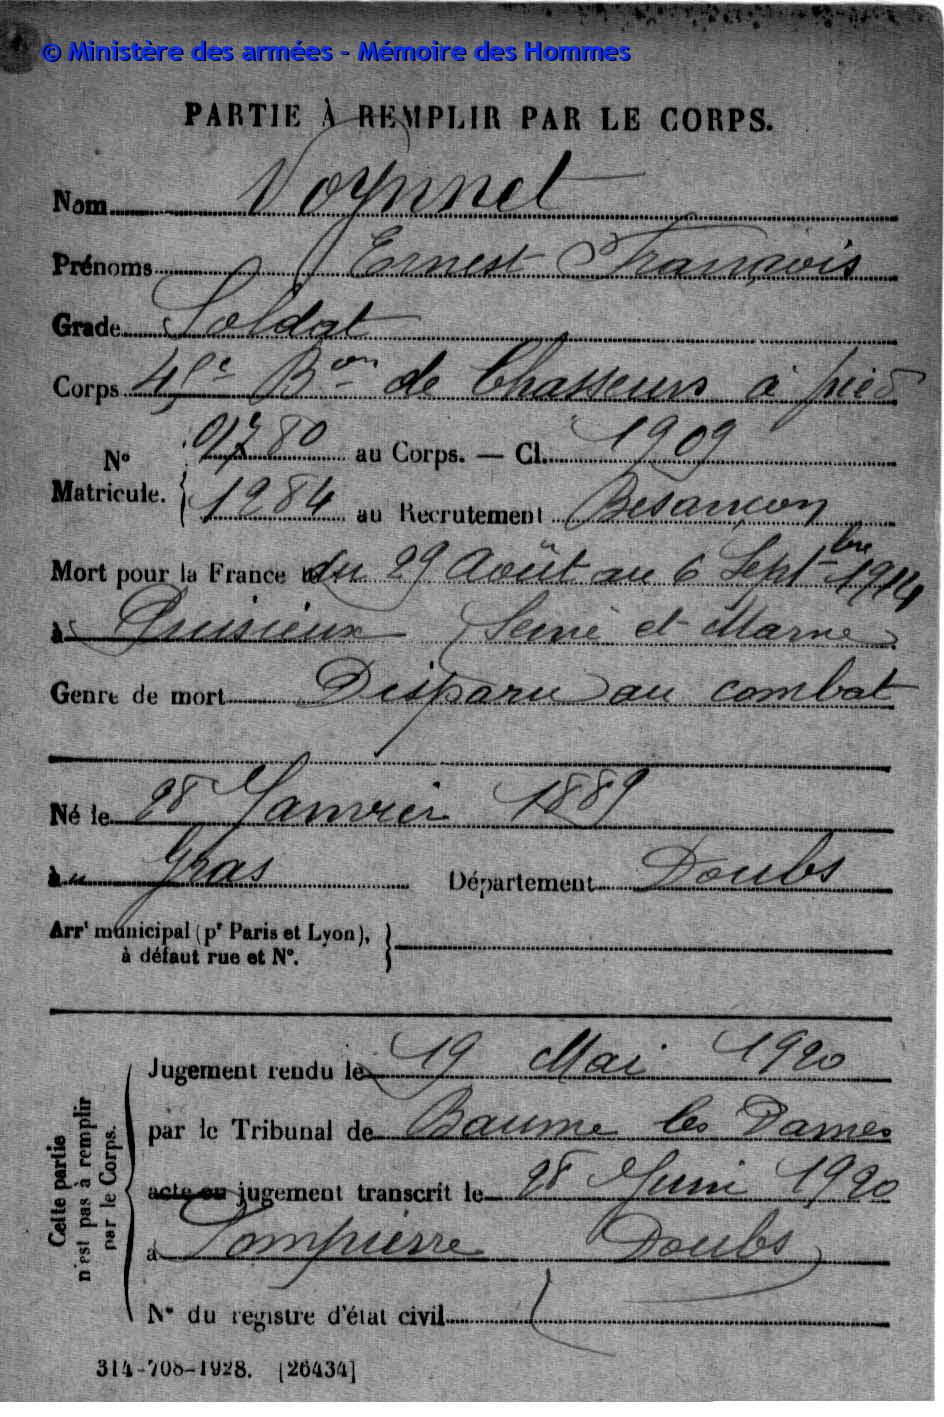 © Ministère des armées - Mémoire des Hommes
PARTIE À REMPLIR PAR LE CORPS.
Nom Voynnet
Prénoms Ernest François
Grade Soldat
Corps 45e Bon de Chasseurs à pied
N° Matricule. { 01780 au Corps. — Cl. 1909
1284 au Recrutement Besançon
Mort pour la France du 29 Août au 6 Septbre 1914
à Puisieux (Seine et Marne)
Genre de mort Disparu au combat
Né le 28 Janvier 1889
à Gras Département Doubs
Arrt municipal (pr Paris et Lyon), }
à défaut rue et N°.
Cette partie n'est pas à remplir par le Corps.
Jugement rendu le 19 Mai 1920
par le Tribunal de Baume les Dames
acte ou jugement transcrit le 28 Juin 1920
à Dompierre Doubs
N° du registre d'état civil
314-708-1928. [26434]